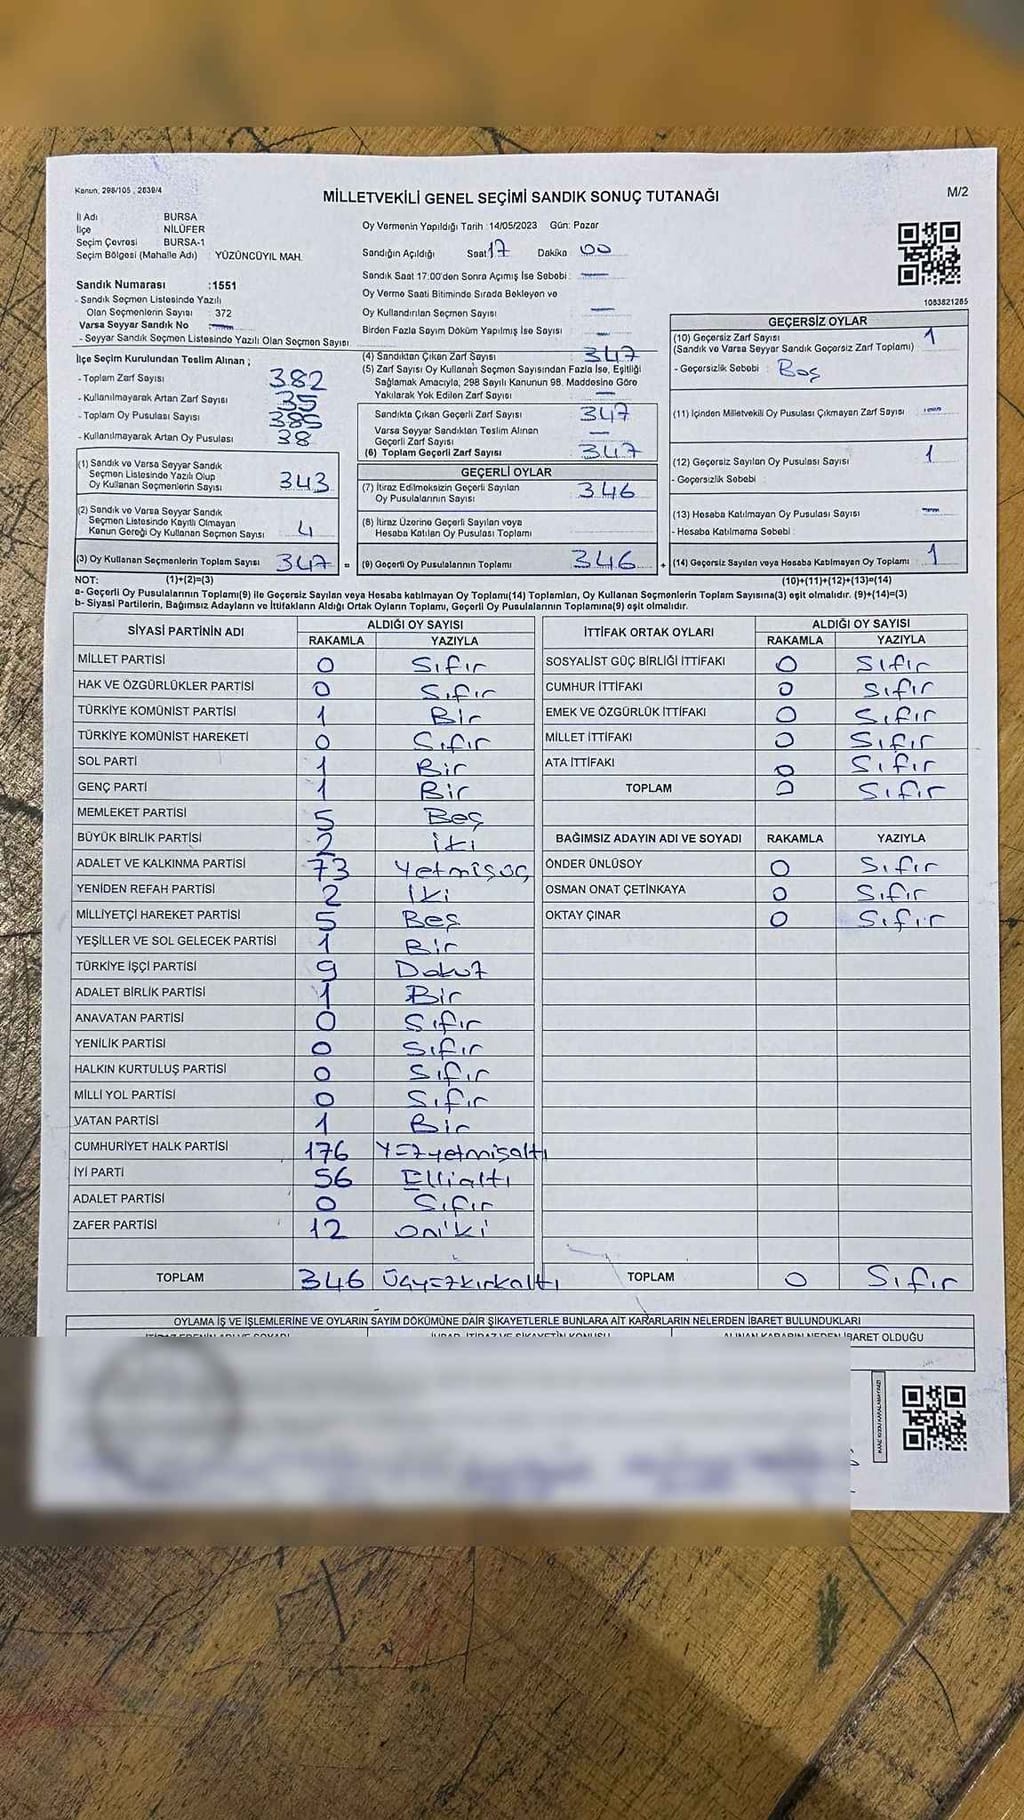 Kanun, 298/105 , 2839/4
MİLLETVEKİLİ GENEL SEÇİMİ SANDIK SONUÇ TUTANAĞI
M/2
İl Adı BURSA
İlçe NİLÜFER
Seçim Çevresi BURSA-1
Seçim Bölgesi (Mahalle Adı) YÜZÜNCÜYIL MAH.
Sandık Numarası :1551
- Sandık Seçmen Listesinde Yazılı
Olan Seçmenlerin Sayısı : 372
Varsa Seyyar Sandık No
- Seyyar Sandık Seçmen Listesinde Yazılı Olan Seçmen Sayısı
Oy Vermenin Yapıldığı Tarih :14/05/2023 Gün: Pazar
Sandığın Açıldığı Saat 17 Dakika 00
Sandık Saat 17:00'den Sonra Açılmış İse Sebebi :
Oy Verme Saati Bitiminde Sırada Bekleyen ve
Oy Kullandırılan Seçmen Sayısı
Birden Fazla Sayım Döküm Yapılmış İse Sayısı
1083821285
İlçe Seçim Kurulundan Teslim Alınan ;
- Toplam Zarf Sayısı 382
- Kullanılmayarak Artan Zarf Sayısı 35
- Toplam Oy Pusulası Sayısı 385
- Kullanılmayarak Artan Oy Pusulası 38
(1) Sandık ve Varsa Seyyar Sandık
Seçmen Listesinde Yazılı Olup
Oy Kullanan Seçmenlerin Sayısı 343
(2) Sandık ve Varsa Seyyar Sandık
Seçmen Listesinde Kayıtlı Olmayan
Kanun Gereği Oy Kullanan Seçmen Sayısı 4
(3) Oy Kullanan Seçmenlerin Toplam Sayısı 347 =
(4) Sandıktan Çıkan Zarf Sayısı 347
(5) Zarf Sayısı Oy Kullanan Seçmen Sayısından Fazla İse, Eşitliği
Sağlamak Amacıyla, 298 Sayılı Kanunun 98. Maddesine Göre
Yakılarak Yok Edilen Zarf Sayısı
Sandıkta Çıkan Geçerli Zarf Sayısı 347
Varsa Seyyar Sandıktan Teslim Alınan
Geçerli Zarf Sayısı
(6) Toplam Geçerli Zarf Sayısı 347
GEÇERLİ OYLAR
(7) İtiraz Edilmeksizin Geçerli Sayılan
Oy Pusulalarının Sayısı 346
(8) İtiraz Üzerine Geçerli Sayılan veya
Hesaba Katılan Oy Pusulası Toplamı
(9) Geçerli Oy Pusulalarının Toplamı 346 +
GEÇERSİZ OYLAR
(10) Geçersiz Zarf Sayısı 1
(Sandık ve Varsa Seyyar Sandık Geçersiz Zarf Toplamı)
- Geçersizlik Sebebi : Boş
(11) İçinden Milletvekili Oy Pusulası Çıkmayan Zarf Sayısı
(12) Geçersiz Sayılan Oy Pusulası Sayısı 1
- Geçersizlik Sebebi :
(13) Hesaba Katılmayan Oy Pusulası Sayısı
- Hesaba Katılmama Sebebi :
(14) Geçersiz Sayılan veya Hesaba Katılmayan Oy Toplamı 1
NOT: (1)+(2)=(3) (10)+(11)+(12)+(13)=(14)
a- Geçerli Oy Pusulalarının Toplamı(9) ile Geçersiz Sayılan veya Hesaba katılmayan Oy Toplamı(14) Toplamları, Oy Kullanan Seçmenlerin Toplam Sayısına(3) eşit olmalıdır. (9)+(14)=(3)
b- Siyasi Partilerin, Bağımsız Adayların ve İttifakların Aldığı Ortak Oyların Toplamı, Geçerli Oy Pusulalarının Toplamına(9) eşit olmalıdır.
SİYASİ PARTİNİN ADI ALDIĞI OY SAYISI
RAKAMLA YAZIYLA
MİLLET PARTİSİ 0 Sıfır
HAK VE ÖZGÜRLÜKLER PARTİSİ 0 Sıfır
TÜRKİYE KOMÜNİST PARTİSİ 1 Bir
TÜRKİYE KOMÜNİST HAREKETİ 0 Sıfır
SOL PARTİ 1 Bir
GENÇ PARTİ 1 Bir
MEMLEKET PARTİSİ 5 Beş
BÜYÜK BİRLİK PARTİSİ 2 iki
ADALET VE KALKINMA PARTİSİ 73 Yetmişüç
YENİDEN REFAH PARTİSİ 2 İki
MİLLİYETÇİ HAREKET PARTİSİ 5 Beş
YEŞİLLER VE SOL GELECEK PARTİSİ 1 Bir
TÜRKİYE İŞÇİ PARTİSİ 9 Dokuz
ADALET BİRLİK PARTİSİ 1 Bir
ANAVATAN PARTİSİ 0 Sıfır
YENİLİK PARTİSİ 0 Sıfır
HALKIN KURTULUŞ PARTİSİ 0 Sıfır
MİLLİ YOL PARTİSİ 0 Sıfır
VATAN PARTİSİ 1 Bir
CUMHURİYET HALK PARTİSİ 176 Yüzyetmişaltı
İYİ PARTİ 56 Ellialtı
ADALET PARTİSİ 0 Sıfır
ZAFER PARTİSİ 12 oniki
TOPLAM 346 Üçyüzkırkaltı
İTTİFAK ORTAK OYLARI ALDIĞI OY SAYISI
RAKAMLA YAZIYLA
SOSYALİST GÜÇ BİRLİĞİ İTTİFAKI 0 Sıfır
CUMHUR İTTİFAKI 0 Sıfır
EMEK VE ÖZGÜRLÜK İTTİFAKI 0 Sıfır
MİLLET İTTİFAKI 0 Sıfır
ATA İTTİFAKI 0 Sıfır
TOPLAM 0 Sıfır
BAĞIMSIZ ADAYIN ADI VE SOYADI RAKAMLA YAZIYLA
ÖNDER ÜNLÜSOY 0 Sıfır
OSMAN ONAT ÇETİNKAYA 0 Sıfır
OKTAY ÇINAR 0 Sıfır
TOPLAM 0 Sıfır
OYLAMA İŞ VE İŞLEMLERİNE VE OYLARIN SAYIM DÖKÜMÜNE DAİR ŞİKAYETLERLE BUNLARA AİT KARARLARIN NELERDEN İBARET BULUNDUKLARI
İTİRAZ EDENİN ADI VE SOYADI İHBAR, İTİRAZ VE ŞİKAYETİN KONUSU ALINAN KARARIN NEDEN İBARET OLDUĞU